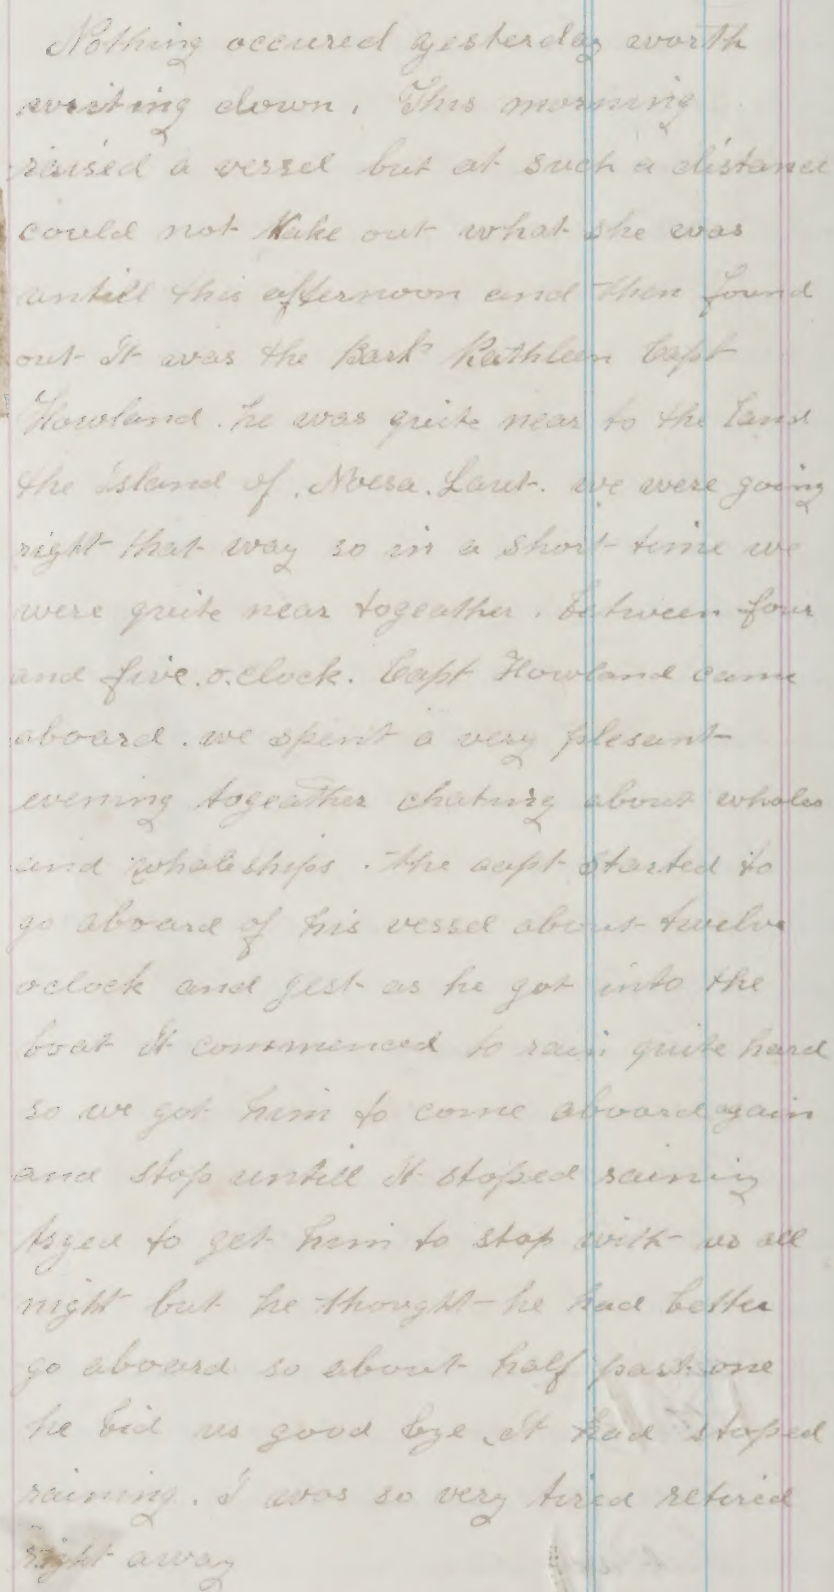 Nothing occured yesterday worth
writing down. This morning
raised a vessel but at such a distance
could not make out what she was
untill this afternoon and then found
out It was the Bark Kathleen Capt
Howland. he was quite near to the land
the island of. Noesa. Laut. we were going
right that way so in a short time we
were quite near togeather. between four
and five. o.clock. Capt Howland came
aboard. we spent a very plesant
evening togeather chating about whales
and whaleships. the capt started to
go aboard of his vessel about twelve
oclock and jest as he got into the
boat It commenced to rain quite hard
so we got him to come aboard again
and stop untill It stoped raining
tryed to get him to stop with us all
night but he thought he had better
go aboard so about half past one
he bid us good bye. It had stoped
raining. I was so very tired retired
right away